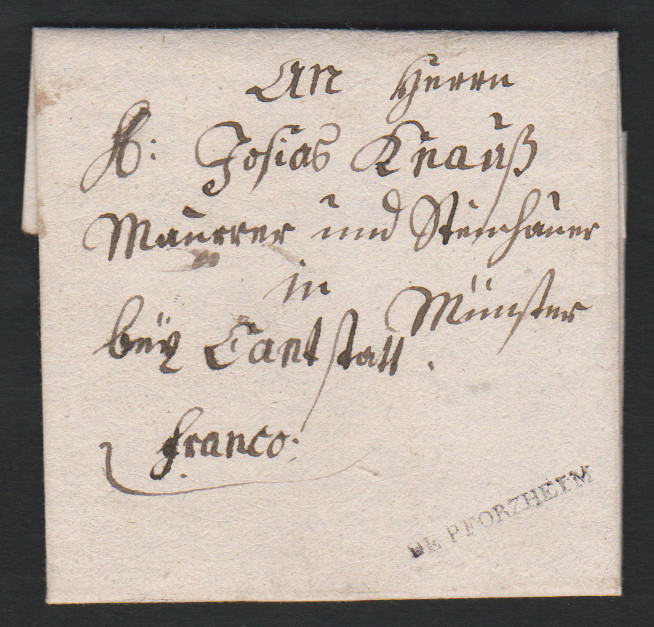 An Herrn
H: Josias Knauß
Maurrer und Steinhauer
in Münster
beÿ Cantstatt.
franco.
DE PFORZHEYM